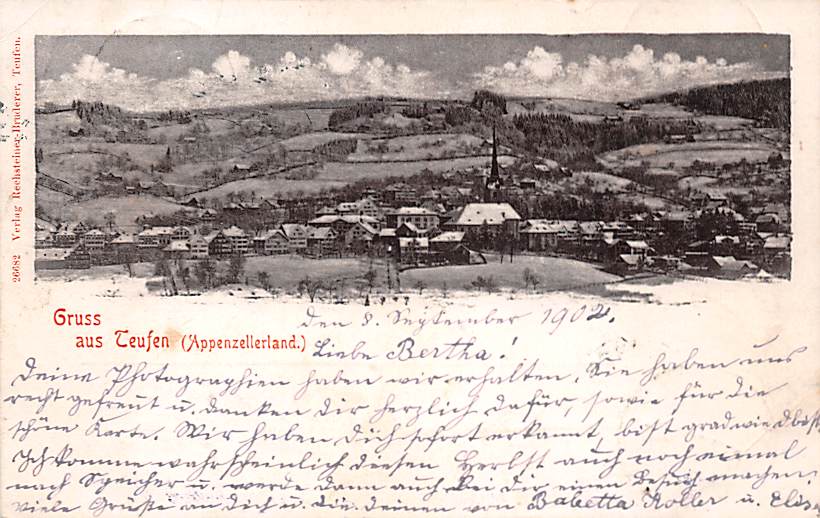 26682 Verlag Rechsteiner-Bruderer, Teufen.
Gruss
aus Teufen (Appenzellerland.)
den 8. September 1902.
Liebe Bertha!
Deine Photographien haben wir erhalten. Sie haben uns
recht gefreut u. danken Dir herzlich dafür, sowie für die
schöne Karte. Wir haben Dich sofort erkannt, bist grad wie Du bist.
Ich komme wahrscheinlich diesen Herbst auch noch einmal
nach Speicher u. werde dann auch bei Dir einen Besuch machen.
Viele Grüsse an Dich u. die Deinen von Babetta Koller u. Elise